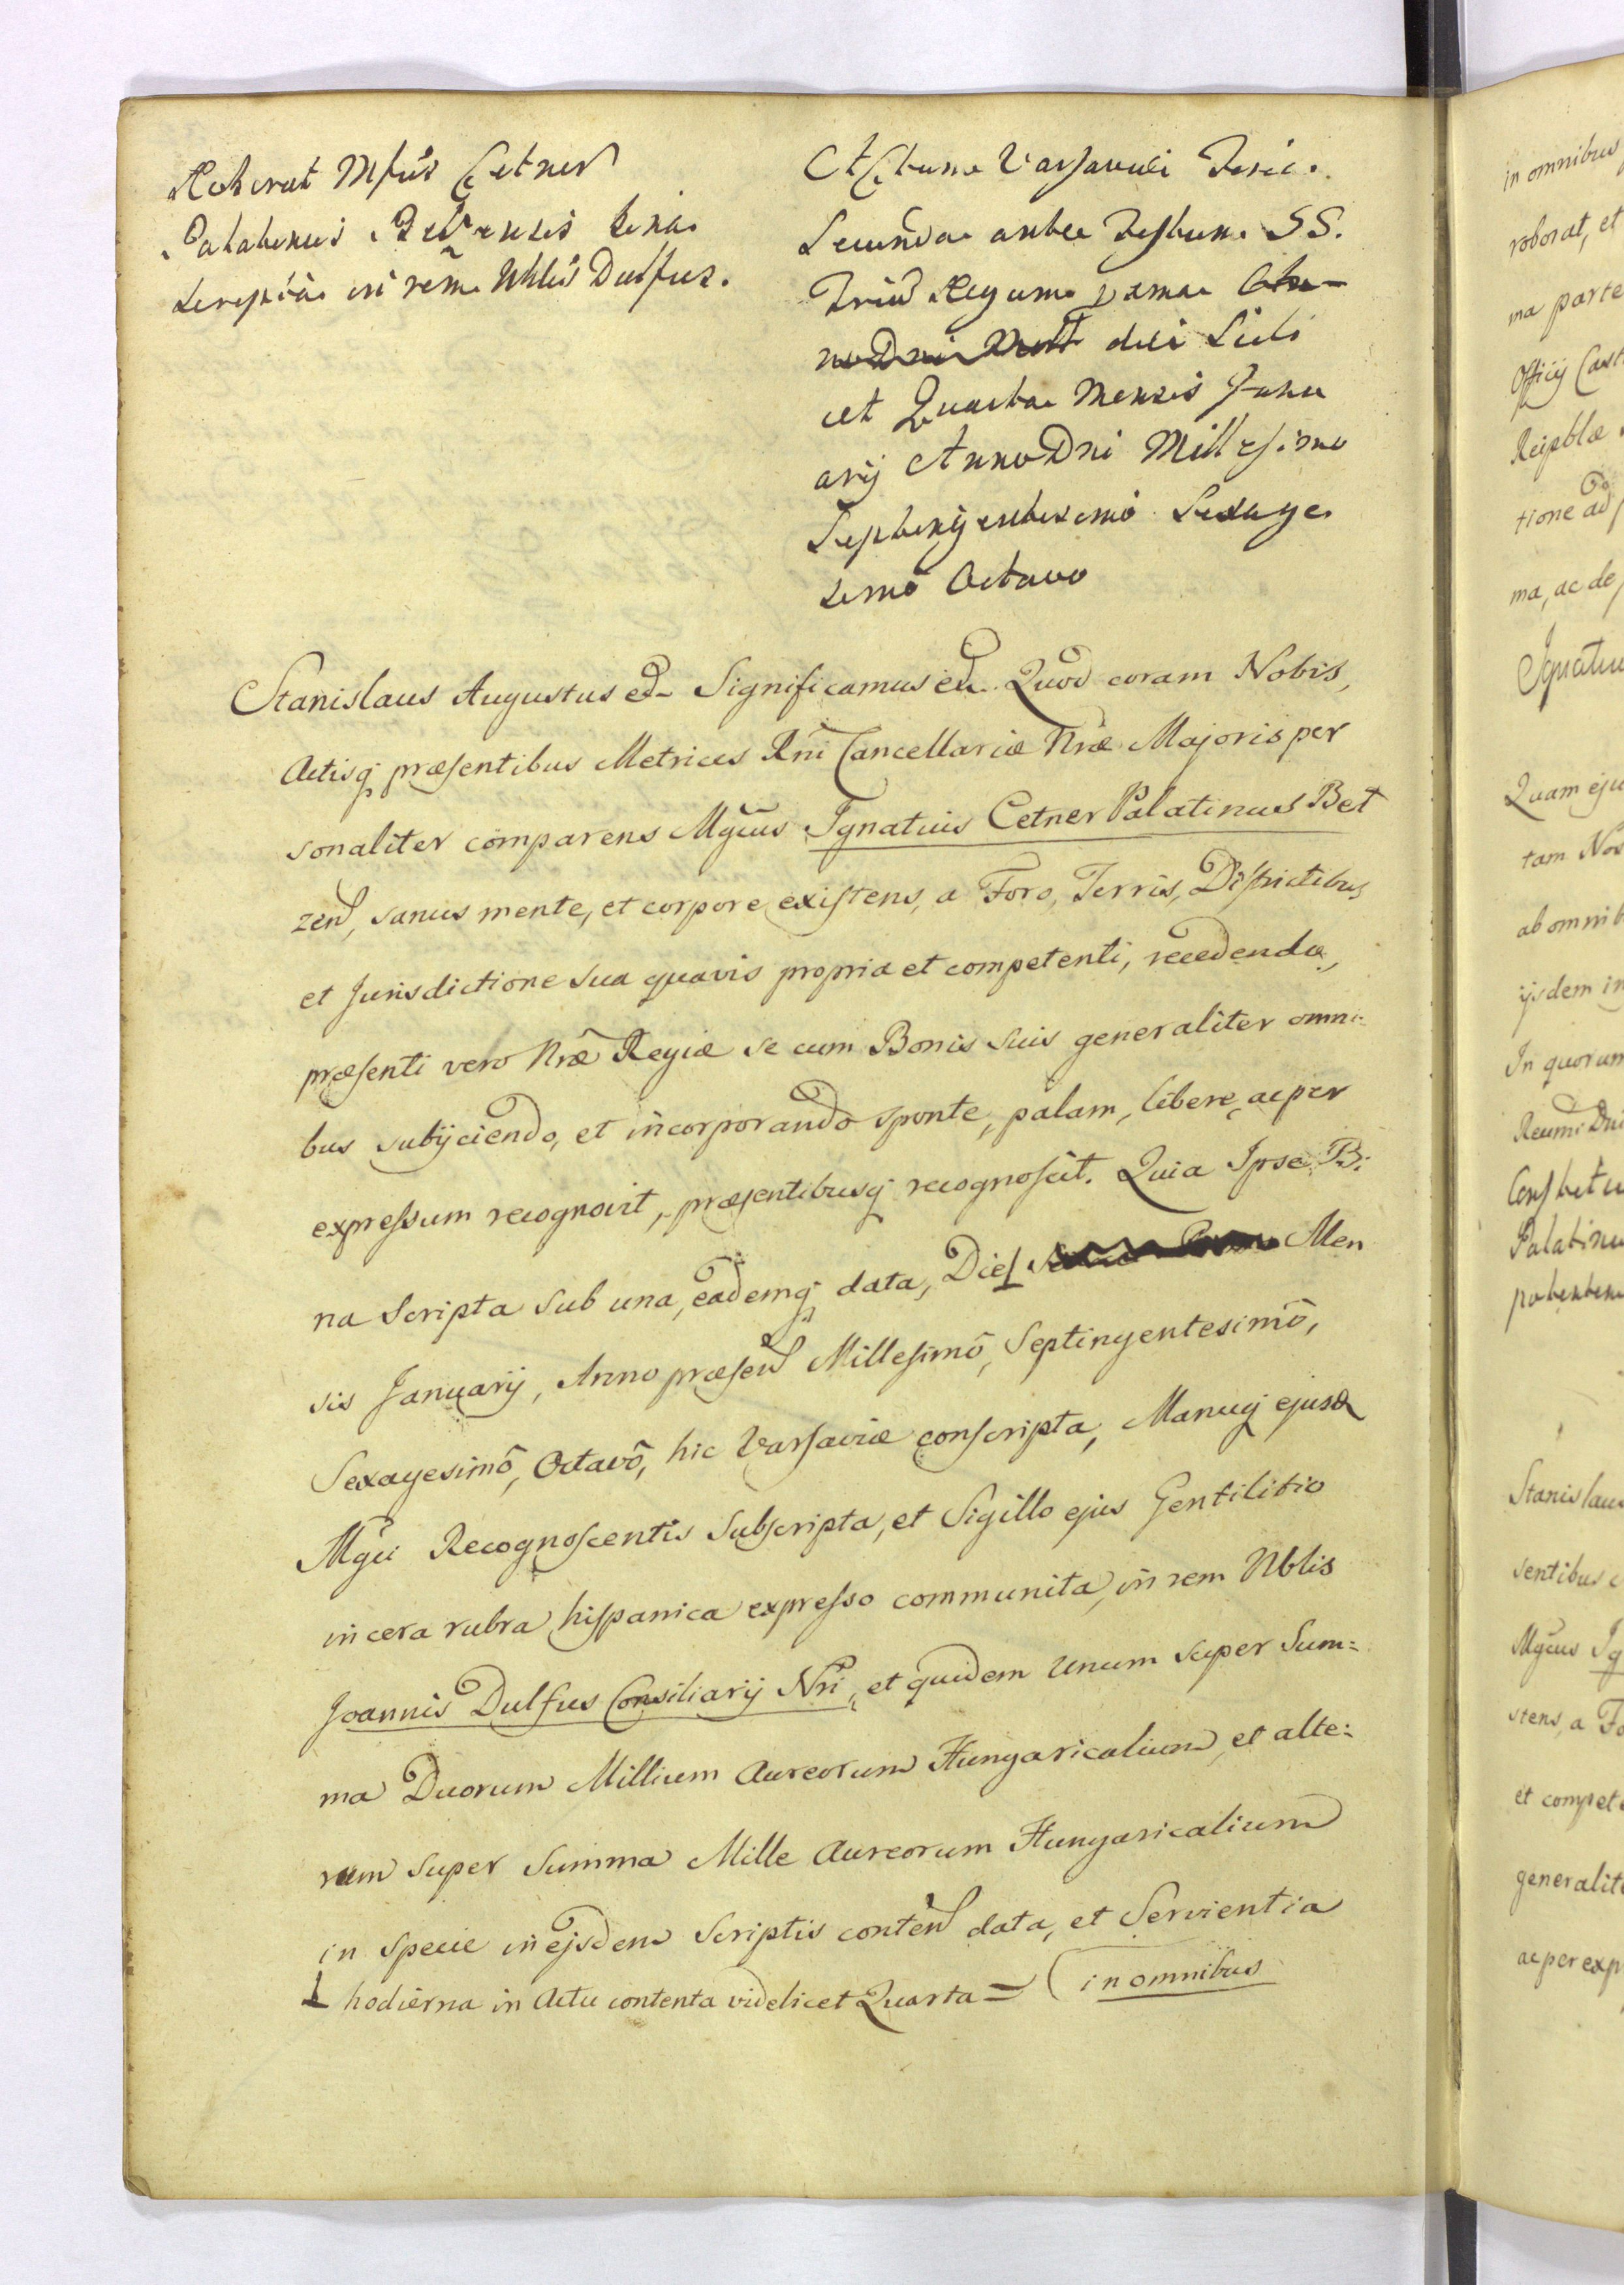 Roborat Mfus Cetner
Palatinus Belzensis bina
scripta in rem Nblis Dulfus.
Actum Varsaviæ Feria
Secunda ante Festum SS.
Trium Regum ~~An-~~
~~no Dni Mill~~ die Scili
cet Quarta Mensis Janu
arij Anno Dni Millesimo
Septingentesimo Sexage
simo Octavo
Stanislaus Augustus etc Significamus etc Quod coram Nobis,
Actisq præsentibus Metrices Rni Cancellariæ Nræ Majoris per
sonaliter comparens Mgcus Ignatius Cetner Palatinus Bel
zen, sanus mente, et corpore existens, a Foro, Terris, Districtibus
et Jurisdictione sua quavis propria et competenti, recedendo,
præsenti vero Nræ Regiæ se cum Bonis suis generaliter omni-
bus subijciendo, et incorporando sponte, palam, libere, ac per
expressum recognovit, præsentibusq recognoscit. Quia Ipse Bi:
na Scripta sub una, eademq data, Die Men
sis Januarij, Anno præsen Millesimô, Septingentesimô,
Sexagesimô, Octavô, hic Varsaviæ conscripta, Manuq ejusd
Mgci Recognoscentis subscripta, et Sigillo ejus Gentilitio
in cera rubra hispanica expresso communita, in rem Nblis
Joannis Dulfus Consiliarij Nri, et quidem unum super Sum:
ma Duorum Millium Aureorum Hungaricalium, et alte:
rum super Summa Mille Aureorum Hungaricalium
in specie in ejsdem Scriptis conten data, et Servientia
hodierna in Actu contenta videlicet Quarta = (in omnibus
in omnibus
roborat, et
ma parte
Officij Cast
Reipblæ
tione ad
ma, ac de
Ignatiu
Quam eju
tam Nos
ab omnib
ijsdem in
In quorum
Palatinu
Stanislaus
sentibus
Mgcus Ig
stens, a Fo
et compete
generalite
ac per exp